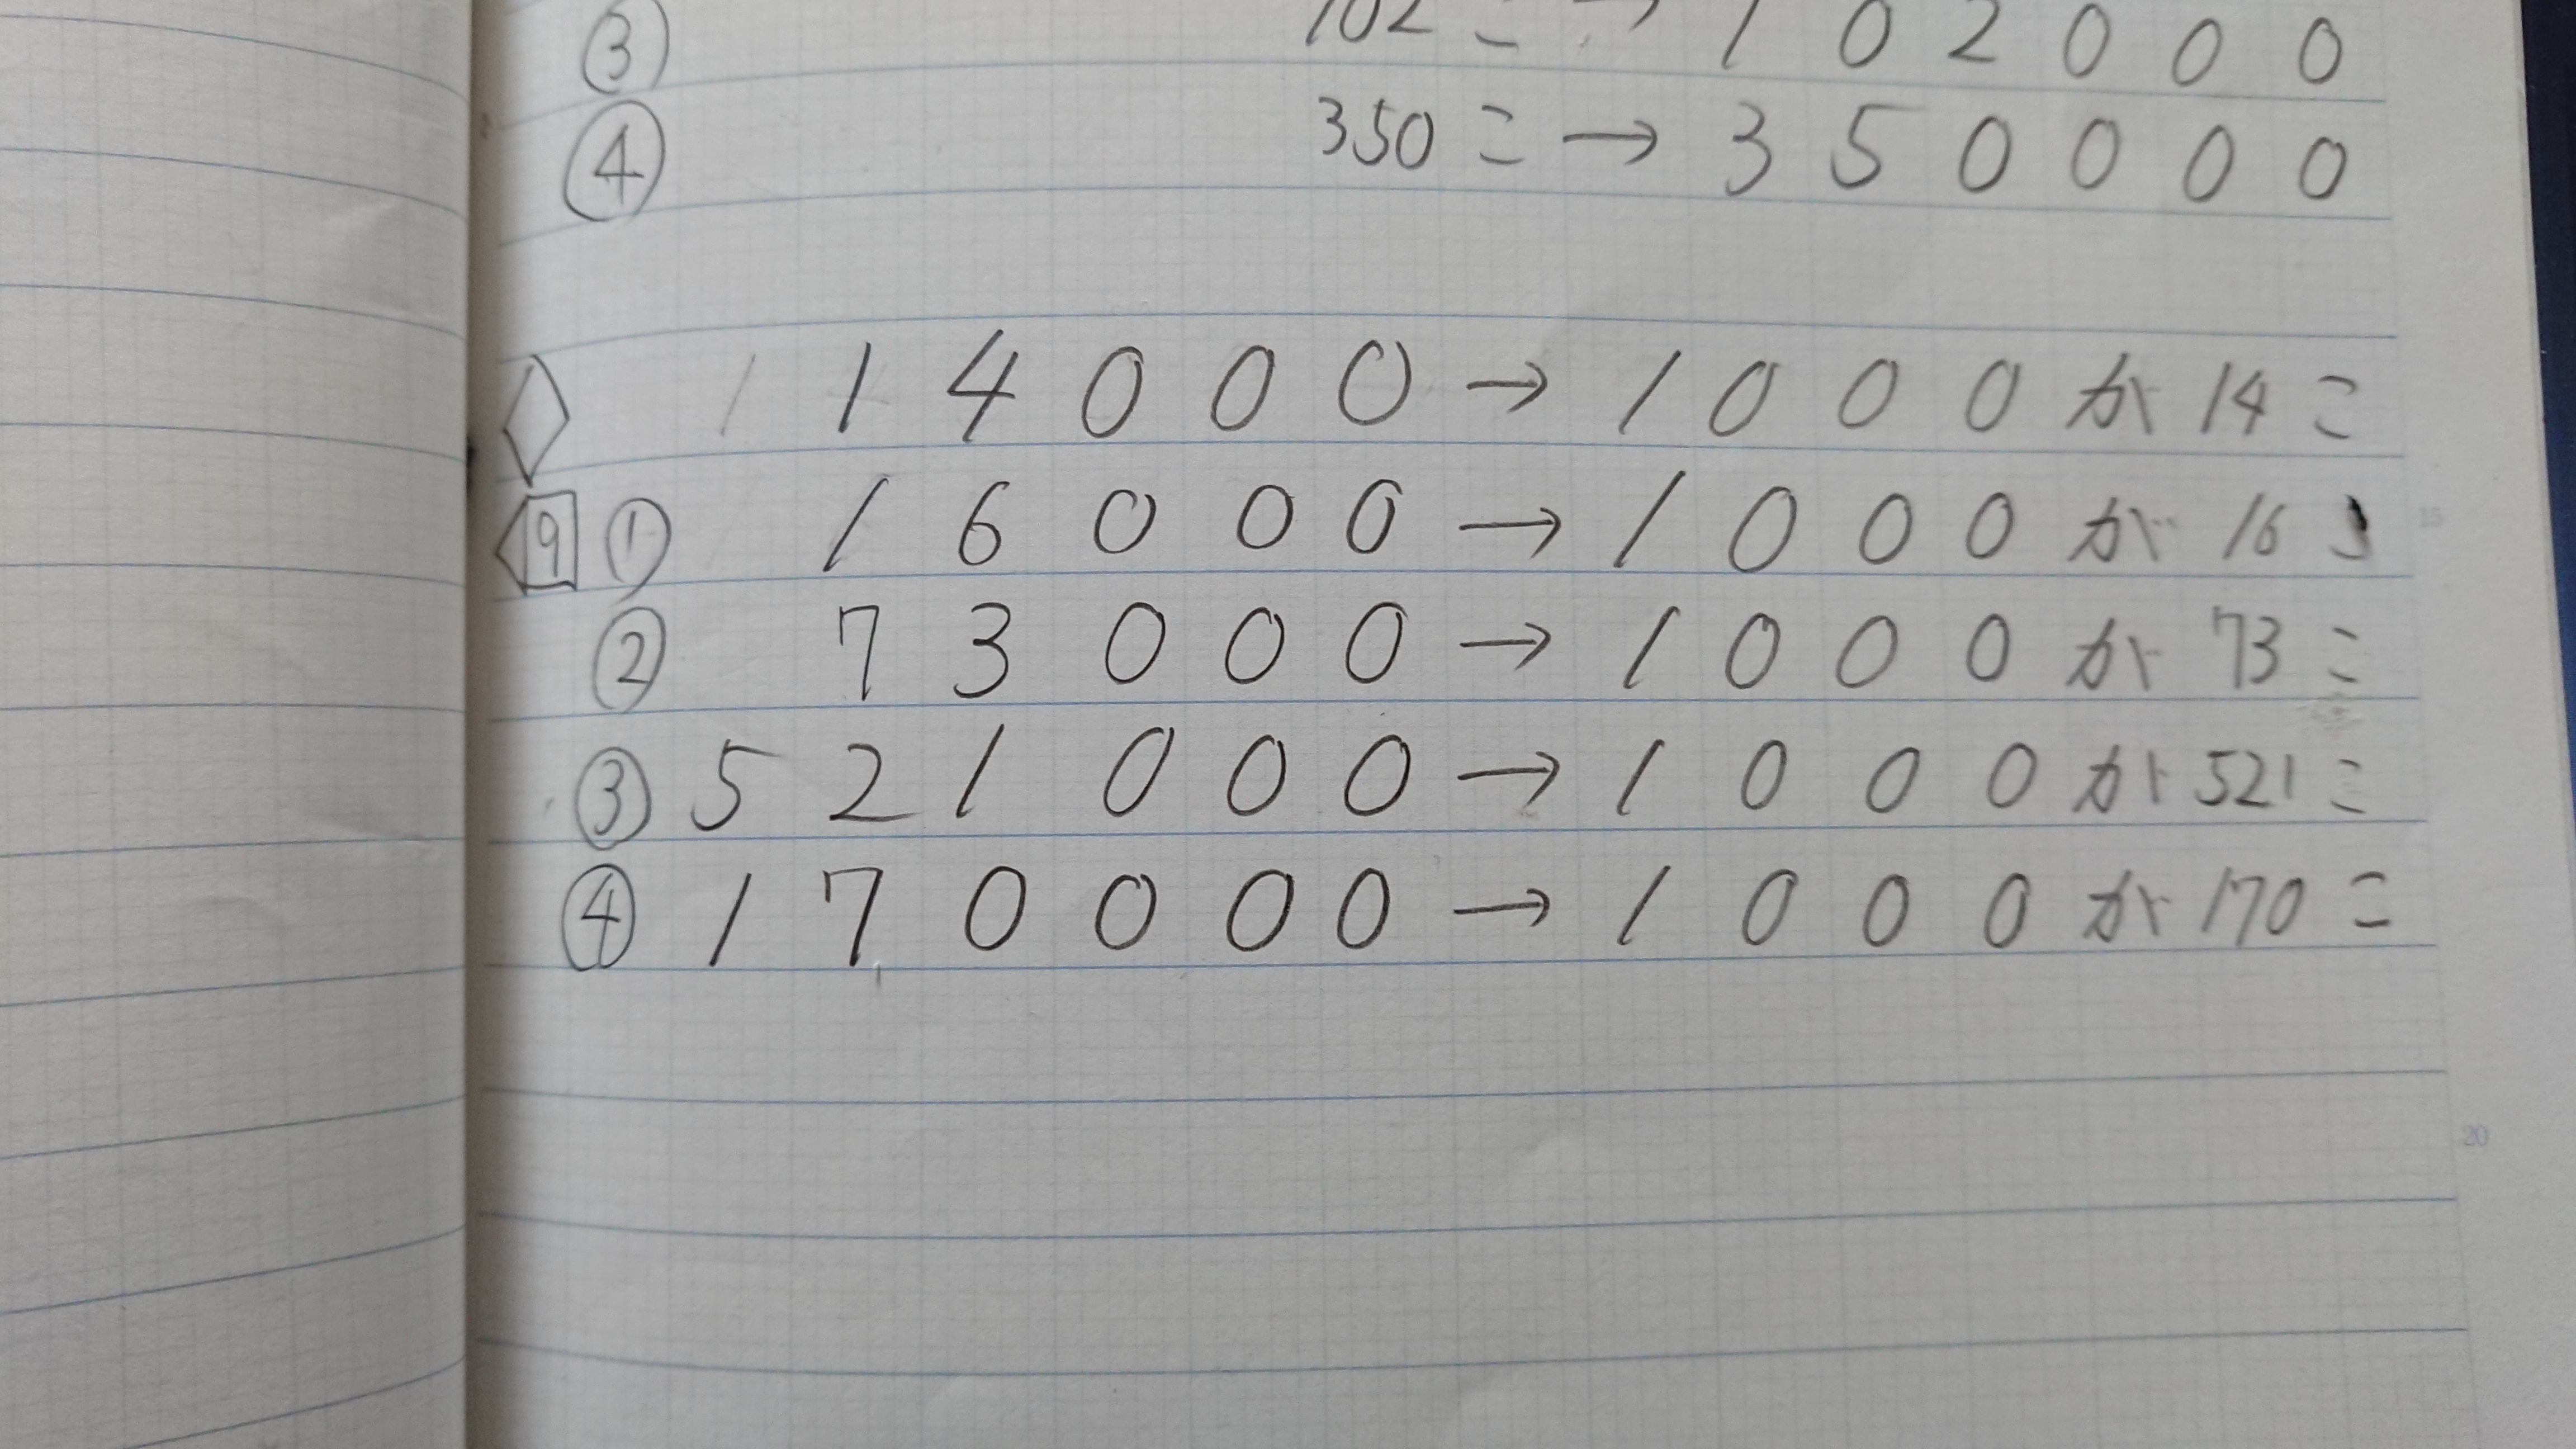 ③ 102こ → 102000
④ 350こ → 350000
14000 → 1000が14こ
9 ① 16000 → 1000が16こ
② 73000 → 1000が73こ
③ 521000 → 1000が521こ
④ 170000 → 1000が170こ
15
20